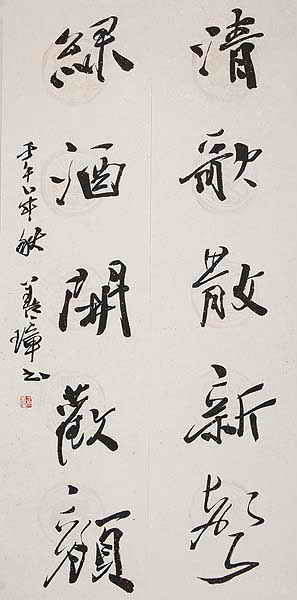 清歌散新聲
綠酒開歡顏
壬午年秋